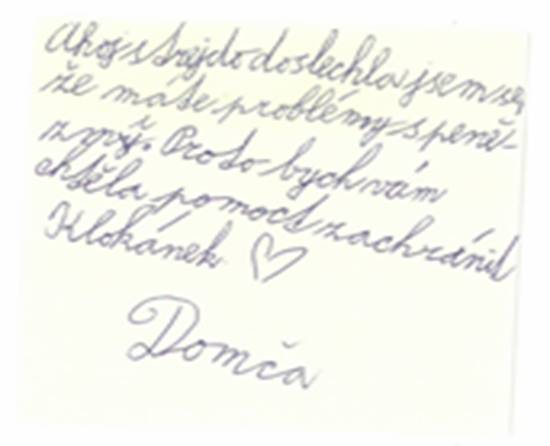 Ahoj strejdo doslechla jsem se,
že máte problémy s peně-
zmy̌. Proto bych vám
chtěla pomoct zachránit
Klokánek ♡
Domča